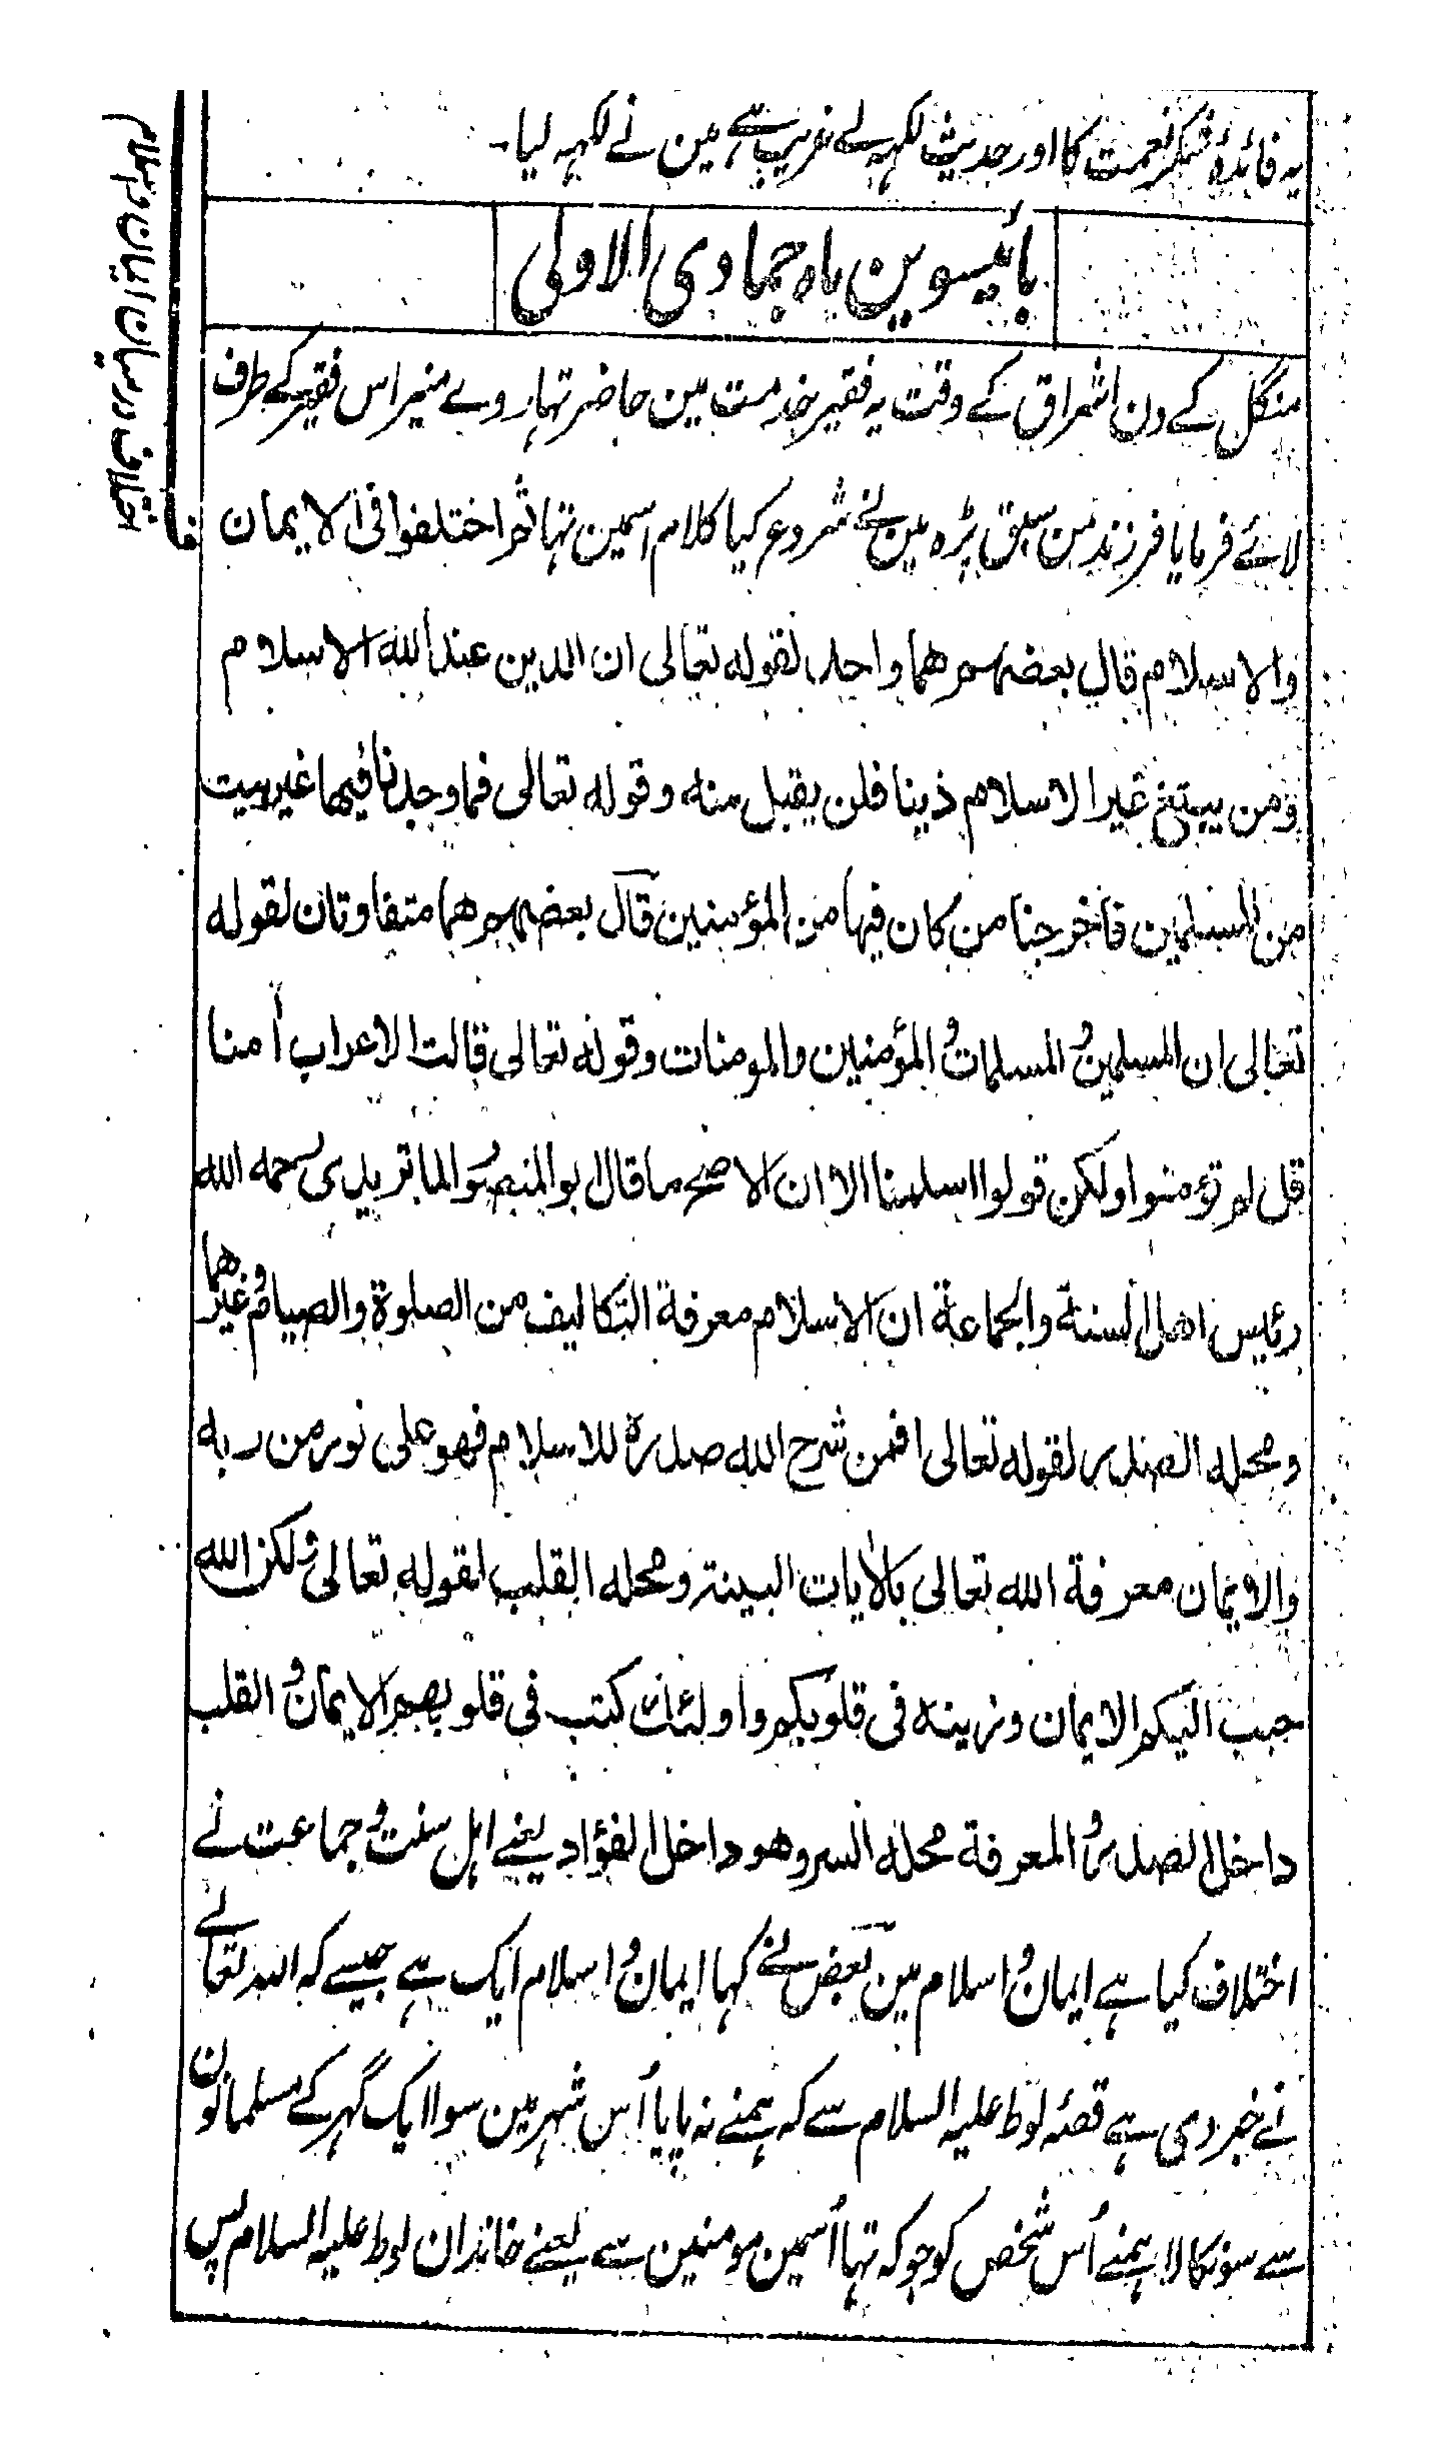 یہ فائدہ شکر نعمت کا اور حدیث لکہہ لے غریب ہے مین نے لکہہ لیا۔
بائیسوین ماہ جمادی الاولی
منگل کے دن اشراق کے وقت یہ فقیر خدمت مین حاضر تہا روے منیر اس فقیر کے طرف
لائے فرمایا فرزند من سبق پڑہ مین نے شروع کیا کلام اسمین تہا ثم اختلفوا فی الایمان
والاسلام قال بعضهم هما واحد لقوله تعالی ان الدین عند الله الاسلام
ومن یبتغ غیر الاسلام دینا فلن یقبل منه وقوله تعالی فما وجدنا فیها غیر بیت
من المسلمین فاخرجنا من کان فیها من المؤمنین قال بعضهم هما متفاوتان لقوله
تعالی ان المسلمین و المسلمات و المؤمنین والمومنات وقوله تعالی قالت الاعراب أمنا
قل لم تؤمنوا ولکن قولوا اسلمنا الا ان الاصح ما قال ابو المنصور الماتریدی رحمه الله
رئیس اهل السنة والجماعة ان الاسلام معرفة التکالیف من الصلوة والصیام و غیرهما
ومحله الصدر لقوله تعالی افمن شرح الله صدره للاسلام فهو علی نور من ربه
والایمان معرفة الله تعالی بالایات البینة ومحله القلب لقوله تعالی ولکن الله
حبب الیکم الایمان وزینه فی قلوبکم واولئك کتب فی قلوبهم الایمان و القلب
داخل الصدر و المعرفة محله السر وهو داخل الفؤاد یعنے اہل سنت و جماعت نے
اختلاف کیا ہے ایمان و اسلام مین بعض نے کہا ایمان و اسلام ایک ہے جیسے کہ اللہ تعالے
نے خبر دی ہے قصۂ لوط علیہ السلام سے کہ ہمنے نہ پایا اُس شہر مین سوا ایک گہر کے مسلمانون
سے سو نکالا ہمنے اُس شخص کو جو کہ تہا اُسمین مومنین سے یعنے خاندان لوط علیہ السلام پس
ف
اختلاف درمیان ایمان و اسلام